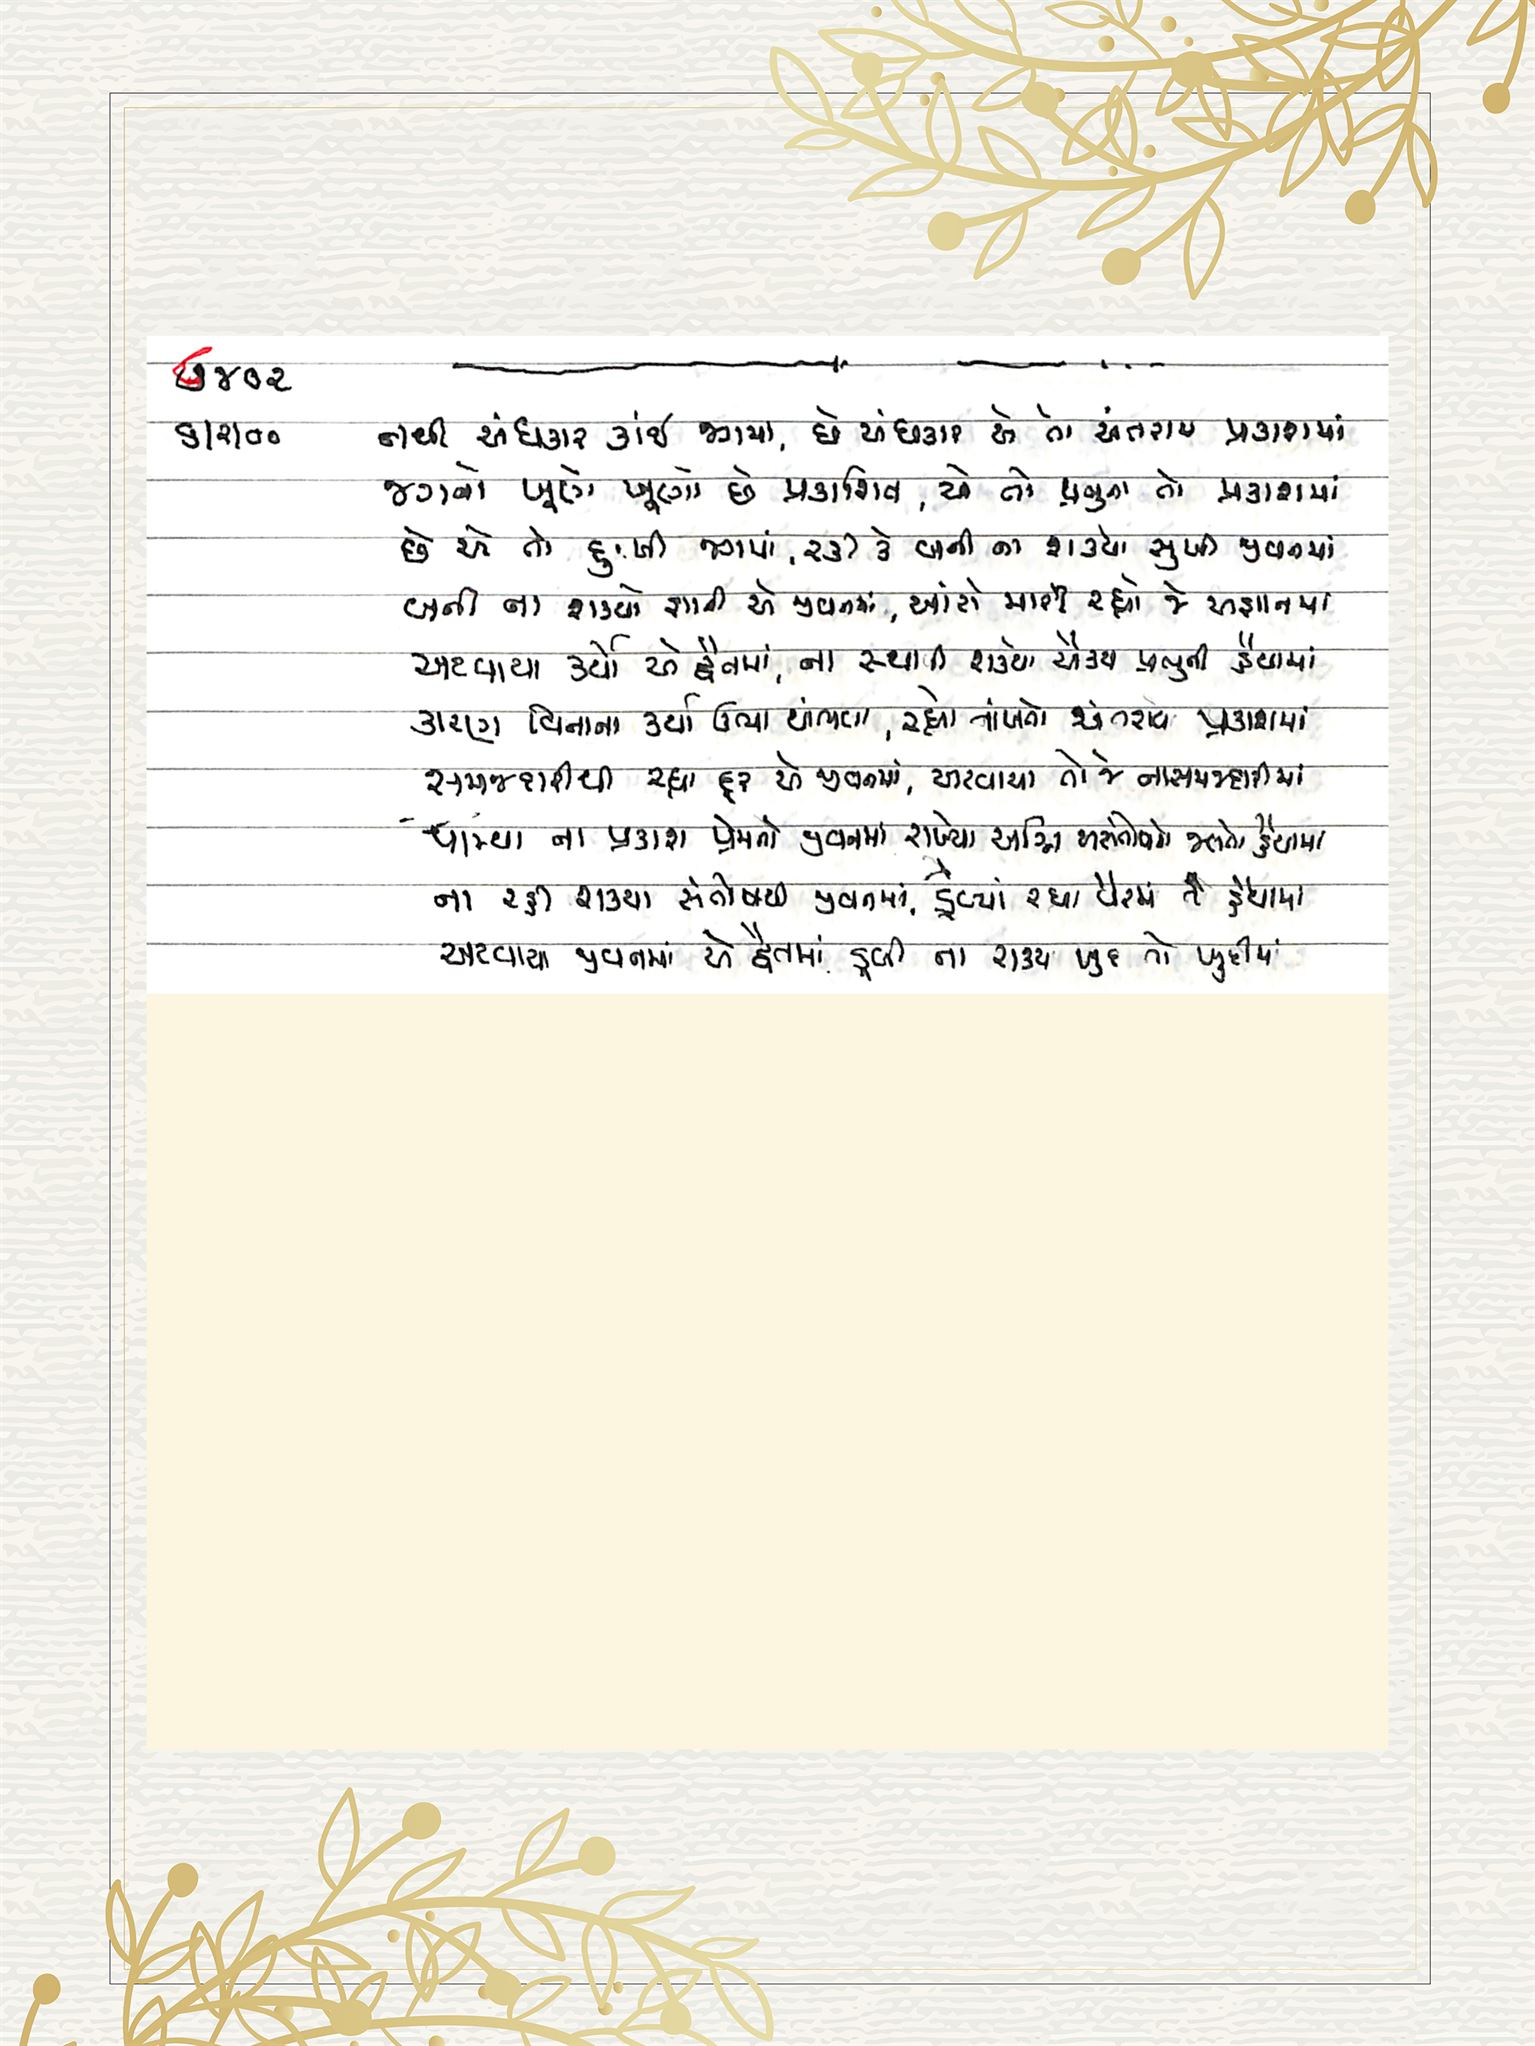 ૭૪૦૨
૬/૨/૦૦ નથી અંધકાર કાંઈ જગમાં, છે અંધકાર એ તો અંતરાય પ્રકાશમાં
જગનો ખૂણે ખૂણો છે પ્રકાશિત, એ તો પ્રભુના તો પ્રકાશમાં
છે એ તો દુઃખી જગમાં, રડી કે બની ના શક્યો સુખી જીવનમાં
બની ના શક્યો જ્ઞાની એ જીવનમાં, આંટો મારી રહ્યો જે અજ્ઞાનમાં
અટવાયા કર્યો એ દ્વૈતમાં, ના સ્થાપી શક્યો ઐક્ય પ્રભુની હૈયામાં
કારણ વિનાના કર્યા ઉભા થાંભલા, રહ્યો નાંખતો અંતરાય પ્રકાશમાં
સમજશક્તિથી રહ્યા દૂર એ જીવનમાં, અટવાયા તો જે નાસમજદારીમાં
પામ્યા ના પ્રકાશ પ્રેમનો જીવનમાં રાખ્યો અગ્નિ અસંતોષનો જલતો હૈયામાં
ના રહી શક્યા સંતોષથી જીવનમાં, ડૂબ્યાં રહ્યા વૈરમાં જે હૈયામાં
અટવાયા જીવનમાં એ દ્વૈતમાં ડૂબી ના શક્ય ખુદ તો ખુદીમાં